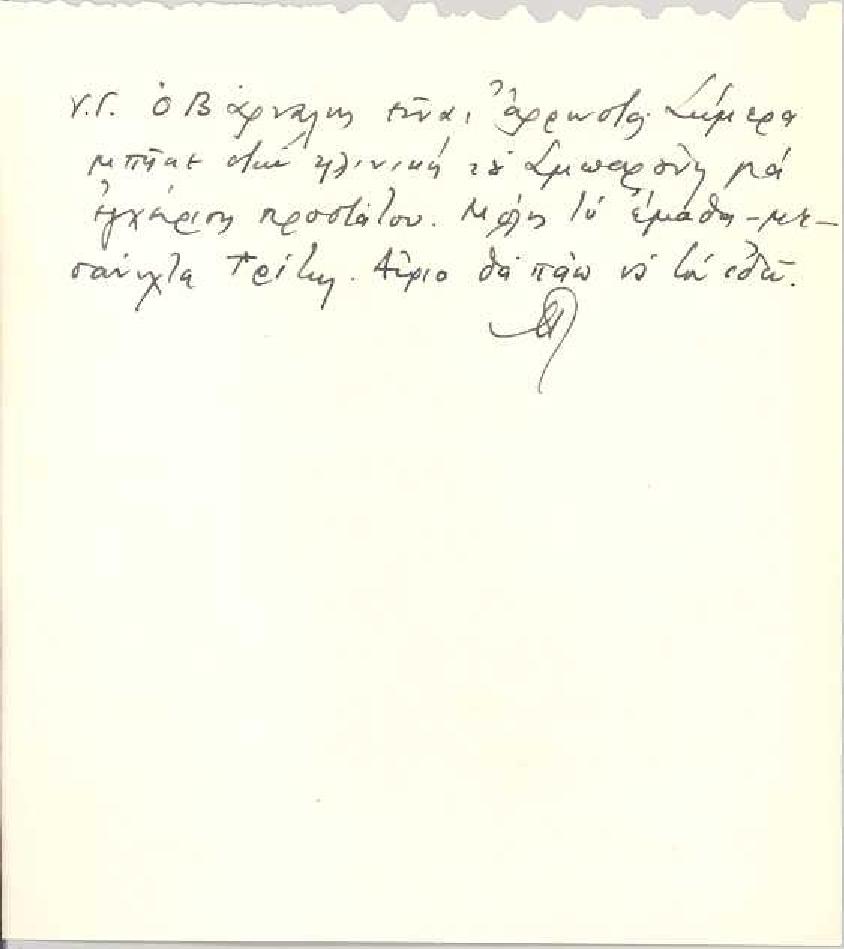 Υ.Γ. Ὁ Βάρναλης εἶναι ἄρρωστος. Σήμερα
μπῆκε στὴν κλινικὴ τοῦ Σμπαρούνη γιὰ
ἐγχείριση προστάτου. Μόλις τό ἔμαθα – με-
σάνυχτα Τρίτης. Αὔριο θὰ πάω νὰ τὸν ἰδῶ.